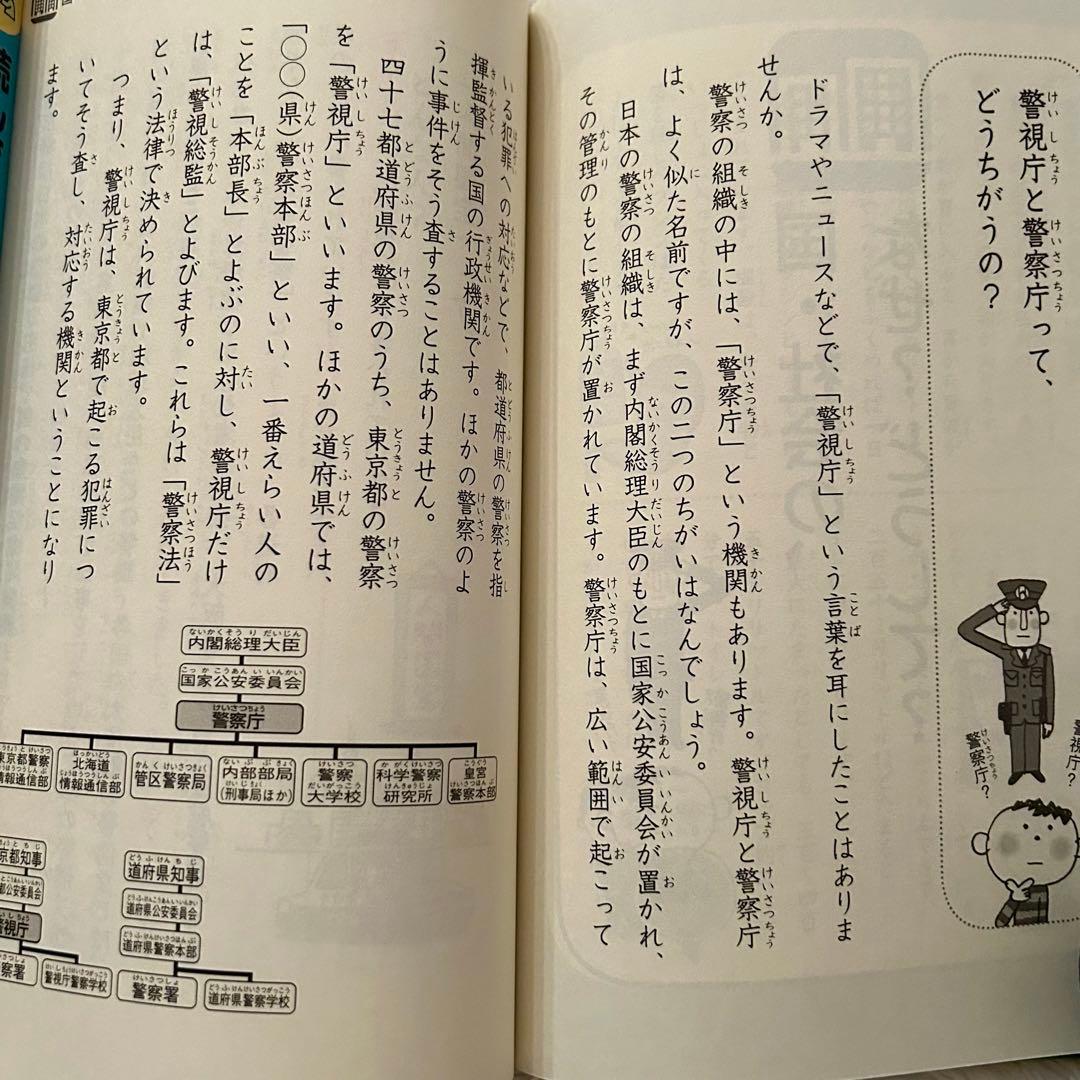 警視庁と警察庁って、
どうちがうの？
警視庁？
警察庁？
ドラマやニュースなどで、「警視庁」という言葉を耳にしたことはありま
せんか。
警察の組織の中には、「警察庁」という機関もあります。警視庁と警察庁
は、よく似た名前ですが、この二つのちがいはなんでしょう。
日本の警察の組織は、まず内閣総理大臣のもとに国家公安委員会が置かれ、
その管理のもとに警察庁が置かれています。警察庁は、広い範囲で起こって
いる犯罪への対応などで、都道府県の警察を指
揮監督する国の行政機関です。ほかの警察のよ
うに事件をそう査することはありません。
四十七都道府県の警察のうち、東京都の警察
を「警視庁」といいます。ほかの道府県では、
「○○（県）警察本部」といい、一番えらい人の
ことを「本部長」とよぶのに対し、警視庁だけ
は、「警視総監」とよびます。これらは「警察法」
という法律で決められています。
つまり、警視庁は、東京都で起こる犯罪につ
いてそう査し、対応する機関ということになり
ます。
内閣総理大臣
国家公安委員会
警察庁
東京都警察
情報通信部
北海道
情報通信部
管区警察局
内部部局
(刑事局ほか)
警察
大学校
科学警察
研究所
皇宮
警察本部
京都知事
都公安委員会
警視庁
察署
警視庁警察学校
道府県知事
道府県公安委員会
道府県警察本部
警察署
道府県警察学校